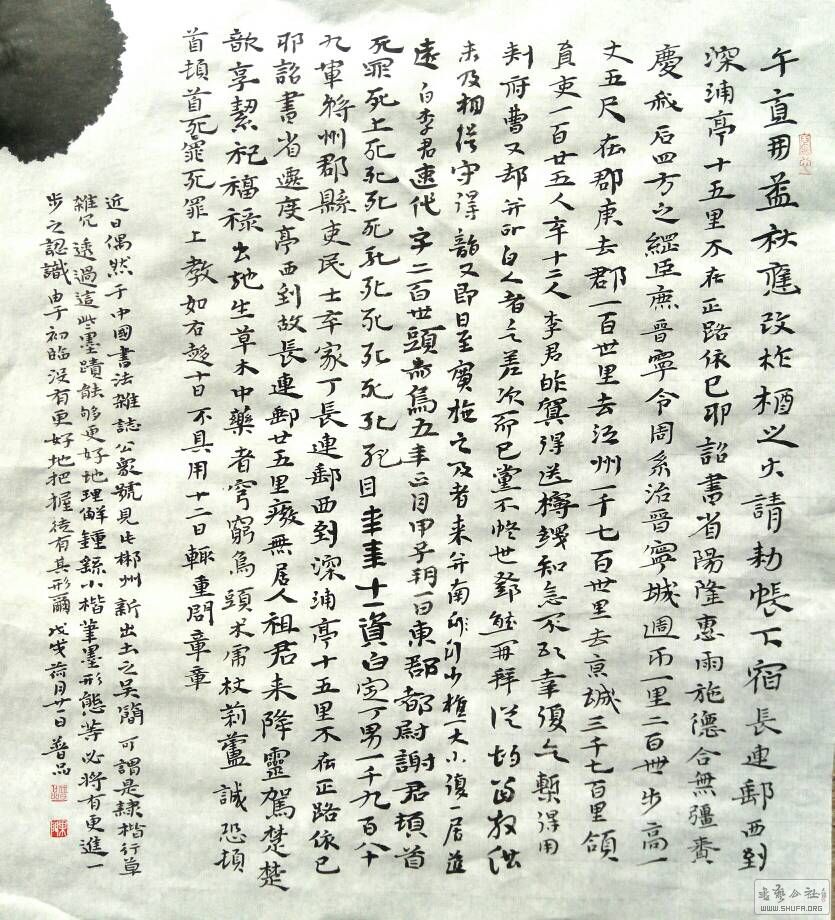 午直用益秋應改柞楢之 請勅帳下宿長連郵西到
深浦亭十五里不在正路依已耶詔書省陽隆惠雨施德合無彊賚
慶 后四方之經臣庶晉寧令周系治晉寧城週帀一里二百卅步高一
丈五尺在郡東去郡一百卅里去江州一千七百卅里去京城三千七百里領
員吏一百廿五人卒十二人李君昨 得送 知 得用
府曹又却并 白人者 差次而已黨不 世鄧 再拜
未及相 守得韶又即日至廣 之及者来并南 大小 一居進
遠白李君速代字二百卅頭 五年正月甲子朔一日東郡都尉謝君頓首
死罪死上死死死死死死死死死死 十一資白定丁男一千九百八十
九軍將州郡縣吏民士卒家丁長連郵西到深浦亭十五里不在正路依已
耶詔書省邊度亭西到故長連郵廿五里癈無居人祖君来降靈駕楚楚
歆享絜祀福祿出 生草木中藥者穹窮烏頭朮 杖莉蘆誠恐頓
首頓首死罪死罪上教如右 十日不具用十二日輒重問章章
近日偶然于中國書法雜誌公衆號見此郴州新出土之吳簡可謂是隸楷行草
雜冗透過這些墨蹟能够更好地理解鍾繇小楷筆墨形態等必將有更進一
步之認識由于初臨没有更好地把握徒有其形爾戊戌荷月廿一日普品
书法公社
WWW.SHUFA.ORG